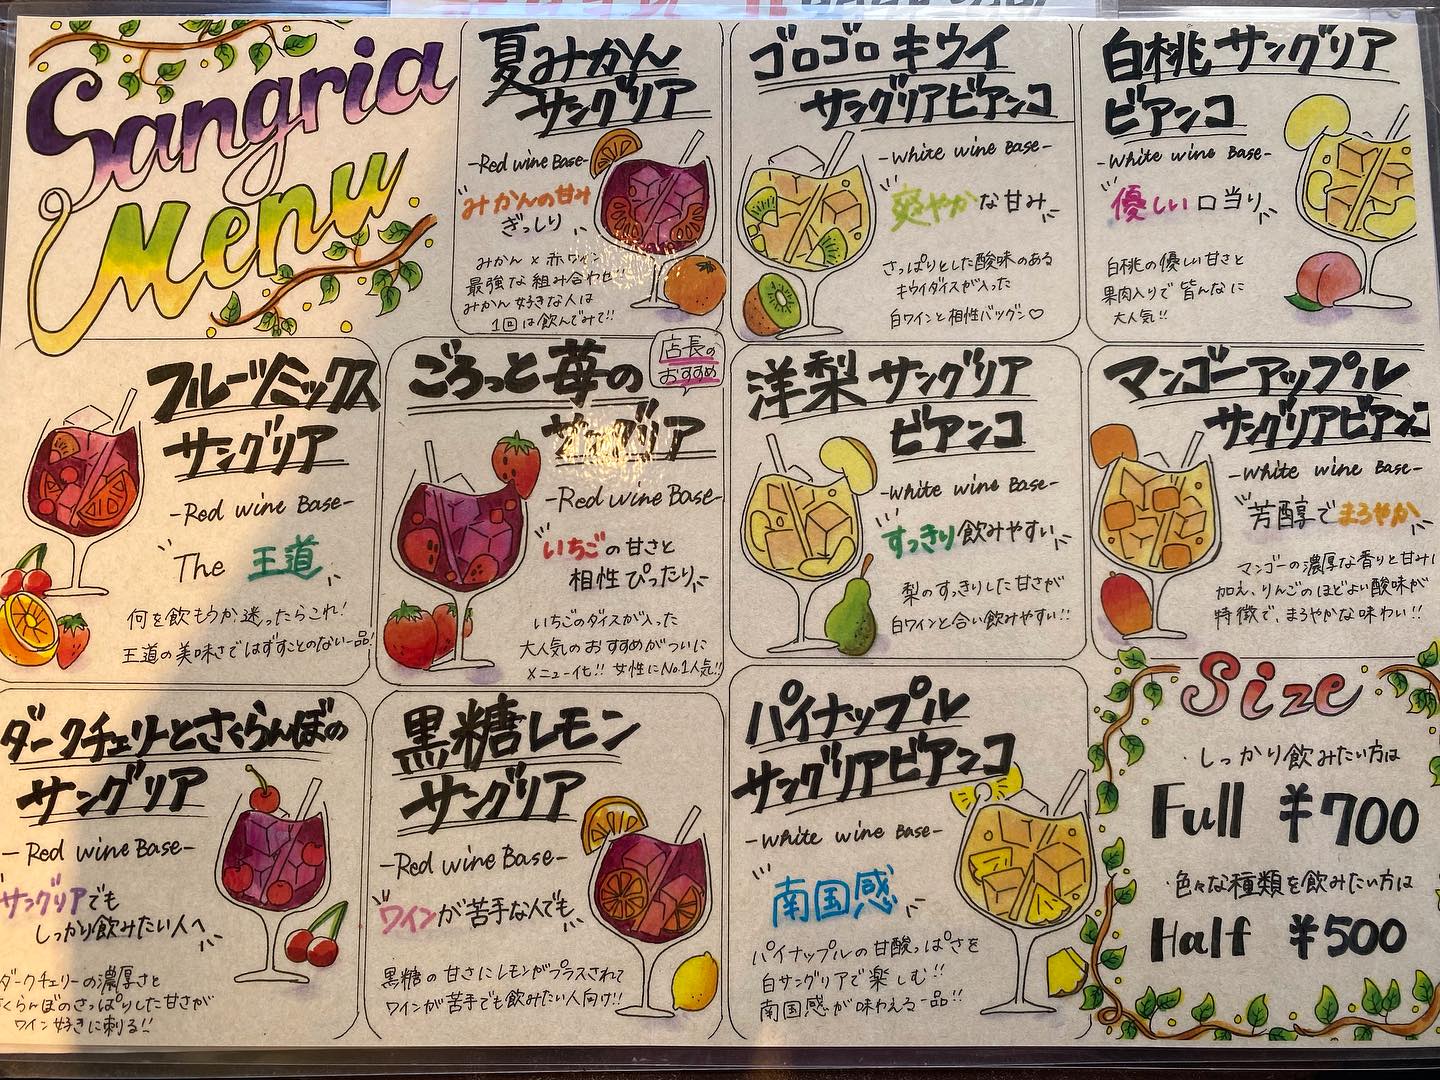 Sangria
Menu
夏みかん
サングリア
-Red wine Base-
みかんの甘み
ぎっしり
みかん×赤ワイン
最強な組み合わせ!!
みかん好きな人は
1回は飲んでみて!!
ゴロゴロキウイ
サングリアビアンコ
-White wine Base-
爽やかな甘み
さっぱりとした酸味のある
キウイダイスが入った
白ワインと相性バツグン♡
白桃サングリア
ビアンコ
-White wine Base-
優しい口当り
白桃の優しい甘さと
果肉入りで皆んなに
大人気!!
フルーツミックス
サングリア
-Red wine Base-
The 王道
何を飲もうか迷ったらこれ!
王道の美味さではずすことのない一品!
ごろっと苺の
サングリア
店長の
おすすめ
-Red wine Base-
いちごの甘さと
相性ぴったり
いちごのダイスが入った
大人気のおすすめがついに
メニュー化!! 女性にNo.1人気!!
洋梨サングリア
ビアンコ
-White wine Base-
すっきり飲みやすい
梨のすっきりした甘さが
白ワインと合い飲みやすい!!
マンゴーアップル
サングリアビアンコ
-White wine Base-
芳醇でまろやか
マンゴーの濃厚な香りと甘みに
加え、りんごのほどよい酸味が
特徴で、まろやかな味わい!!
ダークチェリーとさくらんぼの
サングリア
-Red wine Base-
サングリアでも
しっかり飲みたい人へ
ダークチェリーの濃厚さと
さくらんぼのさっぱりした甘さが
ワイン好きに刺る!!
黒糖レモン
サングリア
-Red wine Base-
ワインが苦手な人でも
黒糖の甘さにレモンがプラスされて
ワインが苦手でも飲みたい人向け!!
パイナップル
サングリアビアンコ
-White wine Base-
南国感
パイナップルの甘酸っぱさを
白サングリアで楽しむ!!
南国感が味わえる一品!!
Size
・しっかり飲みたい方は
Full ¥700
・色々な種類を飲みたい方は
Half ¥500